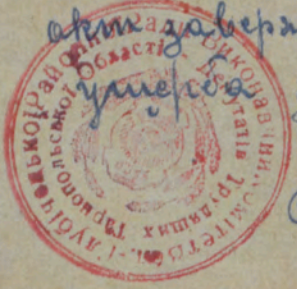 акт заверя
ущерба
Виконавчий Комітет В.-Глубічецької Районної Ради
Депутатів Трудящих Тарнопольської Області